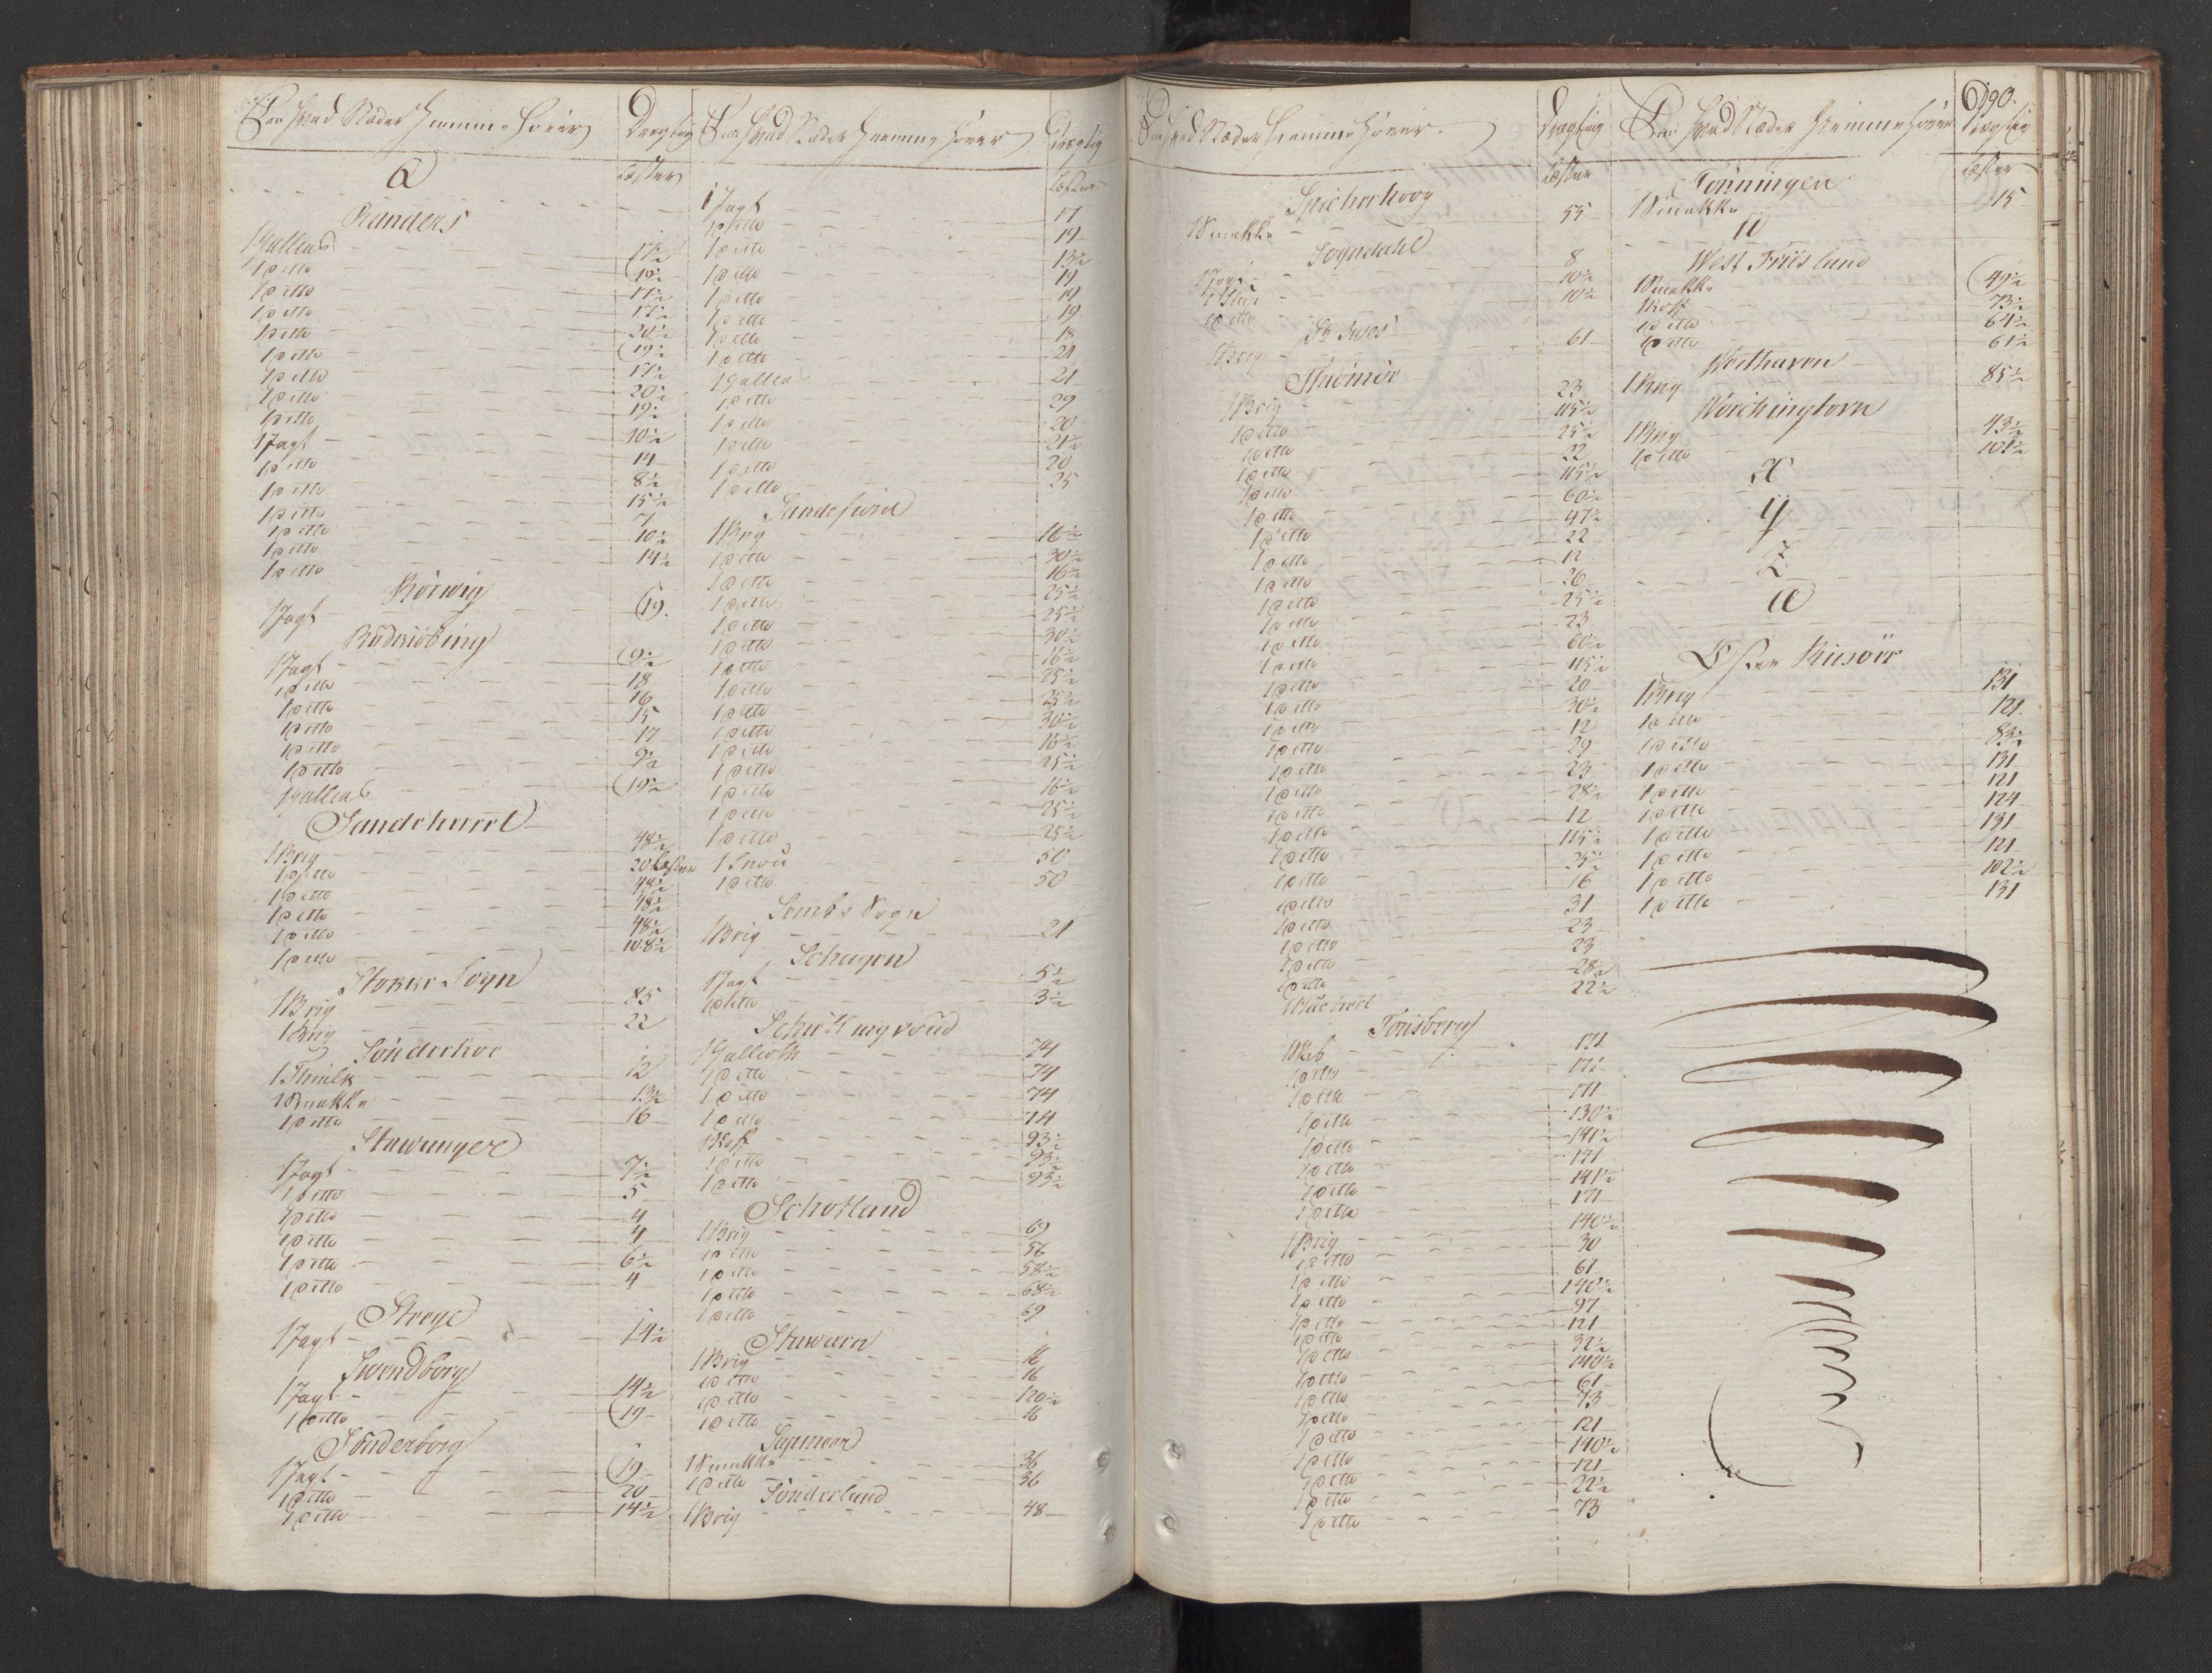 Fra hvad Stæder hiemme hører
Drægtig
Læster
Q
Randers
1 Galleas 17½
1 ditto 19½
1 ditto 17½
1 ditto 17½
1 ditto 20½
1 ditto 19½
1 ditto 17½
1 ditto 20½
1 ditto 19½
1 Jagt 10½
1 ditto 14
1 ditto 8½
1 ditto 15½
1 ditto 7
1 ditto 10½
1 ditto 14½
Rörwig
1 Jagt 19
Rudkiöbing
1 Jagt 9½
1 ditto 18
1 ditto 16
1 ditto 15
1 ditto 17
1 ditto 9½
1 Galleas 19½
1 Brig 48½
1 ditto 20 Læster
1 ditto 48½
1 ditto 48½
1 ditto 48½
1 ditto 108½
Stokke Sogn
1 Brig 85
1 Brig 22
Sönderhoe
12
1 Smakke 13½
1 ditto 16
Stawanger
1 Jagt 7½
1 ditto 5
1 ditto 4
1 ditto 4
1 ditto 6½
1 ditto 4
Strege
1 Jagt 14½
Swendborg
1 Jagt 14½
1 ditto 19
Sönderborg
1 Jagt 19
1 ditto 20
1 ditto 14½
Fra hvad Stæder hiemme hører
Drægtig
Læster
1 Jagt 17
1 ditto 19
1 ditto 13½
1 ditto 19
1 ditto 19
1 ditto 19
1 ditto 18
1 ditto 21
1 Galleas 21
1 ditto 29
1 ditto 20
1 ditto 21½
1 ditto 20
1 ditto 25
Sandefiord
1 Brig 16½
1 ditto 30½
1 ditto 16½
1 ditto 25½
1 ditto 25½
1 ditto 30½
1 ditto 16½
1 ditto 25½
1 ditto 25½
1 ditto 30½
1 ditto 16½
1 ditto 25½
1 ditto 16½
1 ditto 25½
1 ditto 25½
1 Snou 50
1 ditto 50
Sembs Sogn
1 Brig 21
Schagen
1 Jagt 5½
1 ditto 3½
1 Gallioth 74
1 ditto 74
1 ditto 74
1 ditto 74
1 Koff 93½
1 ditto 93½
1 ditto 93½
Schotland
1 Brig 69
1 ditto 56
1 ditto 58½
1 ditto 68½
1 ditto 69
Stawarn
1 Brig 16
1 ditto 16
1 ditto 120½
1 ditto 16
Sapmeer
1 Smakke 36
1 ditto 36
Sönderland
1 Brig 48
Fra hvad Stæder hiemme hører
Drægtig
Læster
Spicherhoog
1 Smakke 55
Sogndahl
1 Jagt 8
10½
1 ditto 10½
St. Yves
1 Brig 61
Thromöe
1 Brig 23
1 ditto 115½
1 ditto 25½
1 ditto 22
1 ditto 115½
1 ditto 60½
1 ditto 47½
1 ditto 22
1 ditto 12
1 ditto 26
1 ditto 25½
1 ditto 23
1 ditto 60½
1 ditto 115½
1 ditto 20
1 ditto 30½
1 ditto 12
1 ditto 29
1 ditto 23
1 ditto 28½
1 ditto 12
1 ditto 115½
1 ditto 25½
1 ditto 16
1 ditto 31
1 ditto 23
1 ditto 23
1 ditto 28½
22½
Tönsberg
1 Skib 171
1 ditto 171
1 ditto 171
1 ditto 130½
1 ditto 141½
1 ditto 171
1 ditto 141½
1 ditto 171
140½
1 Brig 30
1 ditto 61
1 ditto 140½
1 ditto 97
1 ditto 121
1 ditto 32½
1 ditto 140½
1 ditto 61
1 ditto 73
1 ditto 121
1 ditto 140½
1 ditto 121
1 ditto 22½
1 ditto 73
690.
Fra hvad Stæder hiemme hører
Drægtig
Læster
Tönningen
1 Smakke 15
W
West Friisland
1 Smakke 49½
1 Koff 73½
1 ditto 64½
1 ditto 61½
1 Brig 85½
Worchingtorn
1 Brig 43½
1 ditto 101½
X
Y
Z
Æ
Öster Riisöer
1 Brig 131
1 ditto 121
1 ditto 83½
1 ditto 131
1 ditto 121
1 ditto 124
1 ditto 131
1 ditto 121
1 ditto 102½
1 ditto 131